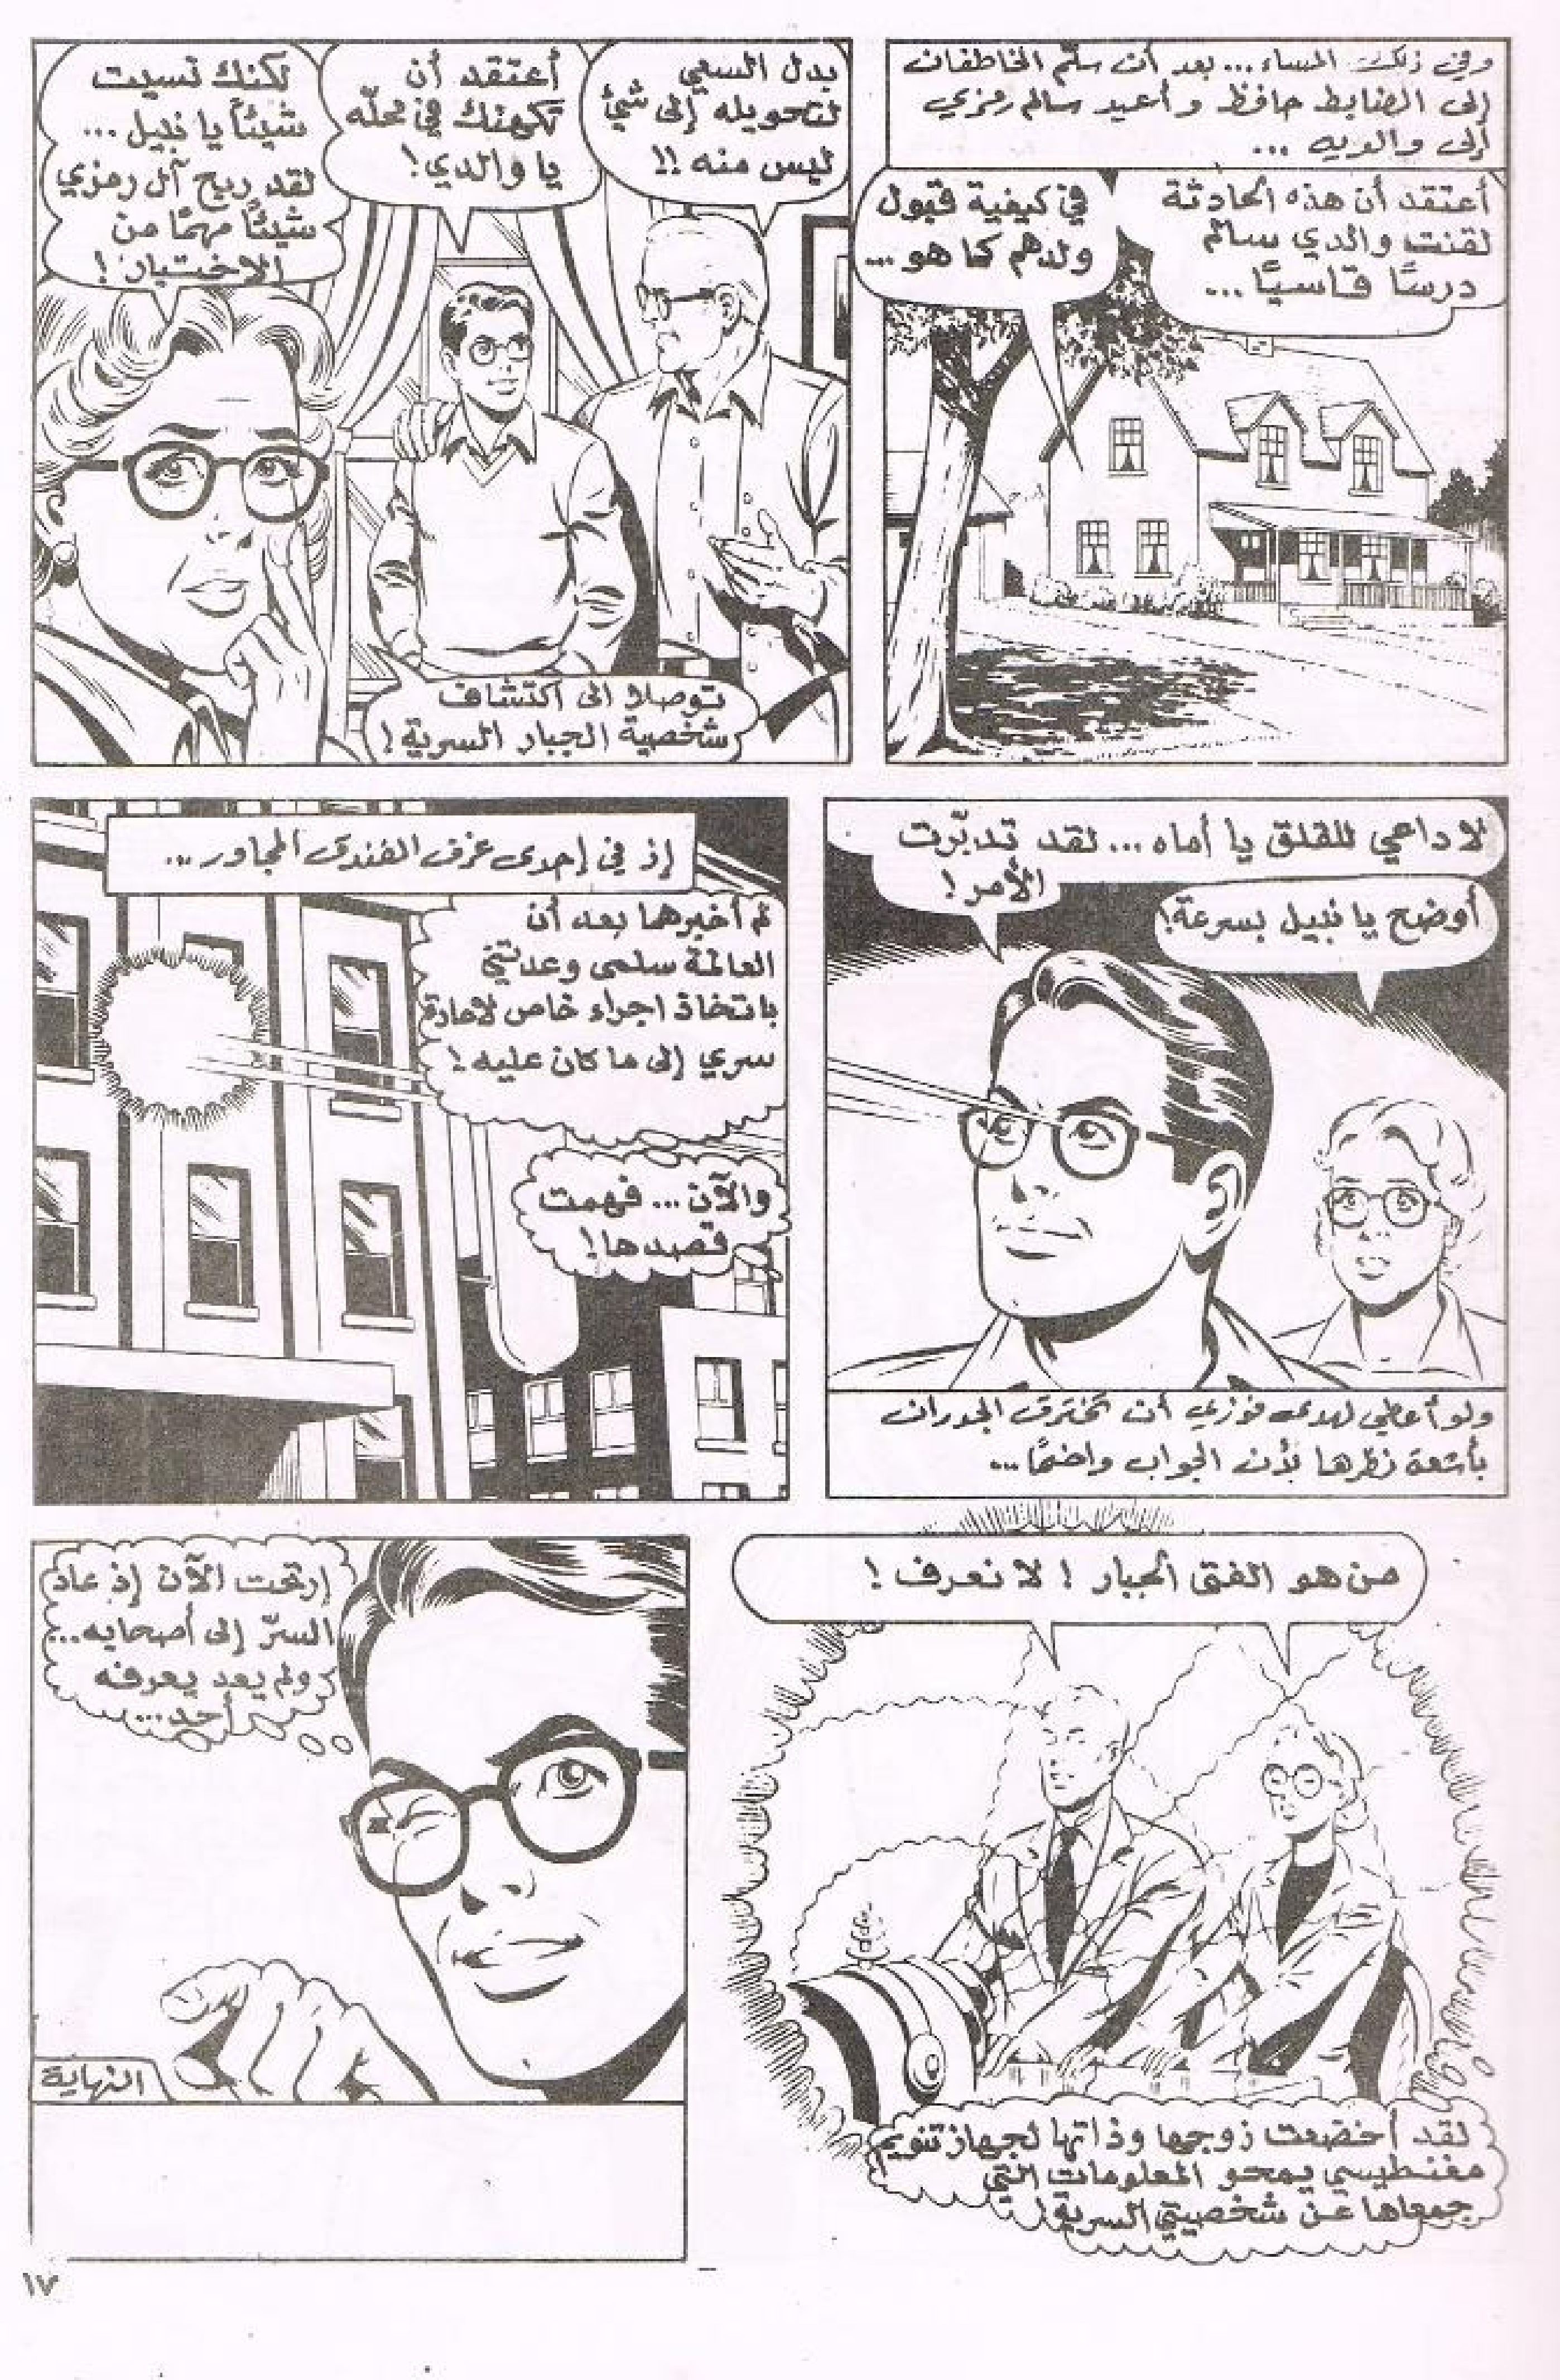 وفي ذلك المساء... بعد أن سلّم الخاطفان
إلى الضابط حافظ وأعيد سالم رمزي
إلى والديه ...
أعتقد أن هذه الحادثة
لقنت والدي سالم
درسًا قاسيًا...
في كيفية قبول
ولدهم كما هو ...
بدل السعي
لتحويله إلى شئ
ليس منه !!
أعتقد أن
تكهنك في محلّه
يا والدي !
لكنك نسيت
شيئًا يا نبيل ...
لقد ربح آل رمزي
شيئًا مهمًا من
الاختبار !
توصلا الى اكتشاف
شخصية الجبار السرية !
لا داعي للقلق يا أماه ... لقد تدبّرت
الأمر !
أوضح يا نبيل بسرعة !
ولو أعطي لهدى فوزي أن تخترق الجدران
بأشعة نظرها لكان الجواب واضحًا...
إذ في إحدى غرف الفندق المجاور ...
لم أخبرهما بعد أن
العالمة سلمى وعدتني
باتخاذ اجراء خاص لاعادة
سري إلى ما كان عليه !
والآن ... فهمت
قصدها !
من هو الفتى الجبار ! لا نعرف !
لقد أخضعت زوجها وذاتها لجهاز تنويم
مغنطيسي يمحو المعلومات التي
جمعاها عن شخصيتي السرية !
إرتحت الآن إذ عاد
السرّ إلى أصحابه...
ولم يعد يعرفه
أحد...
النهاية
١٧